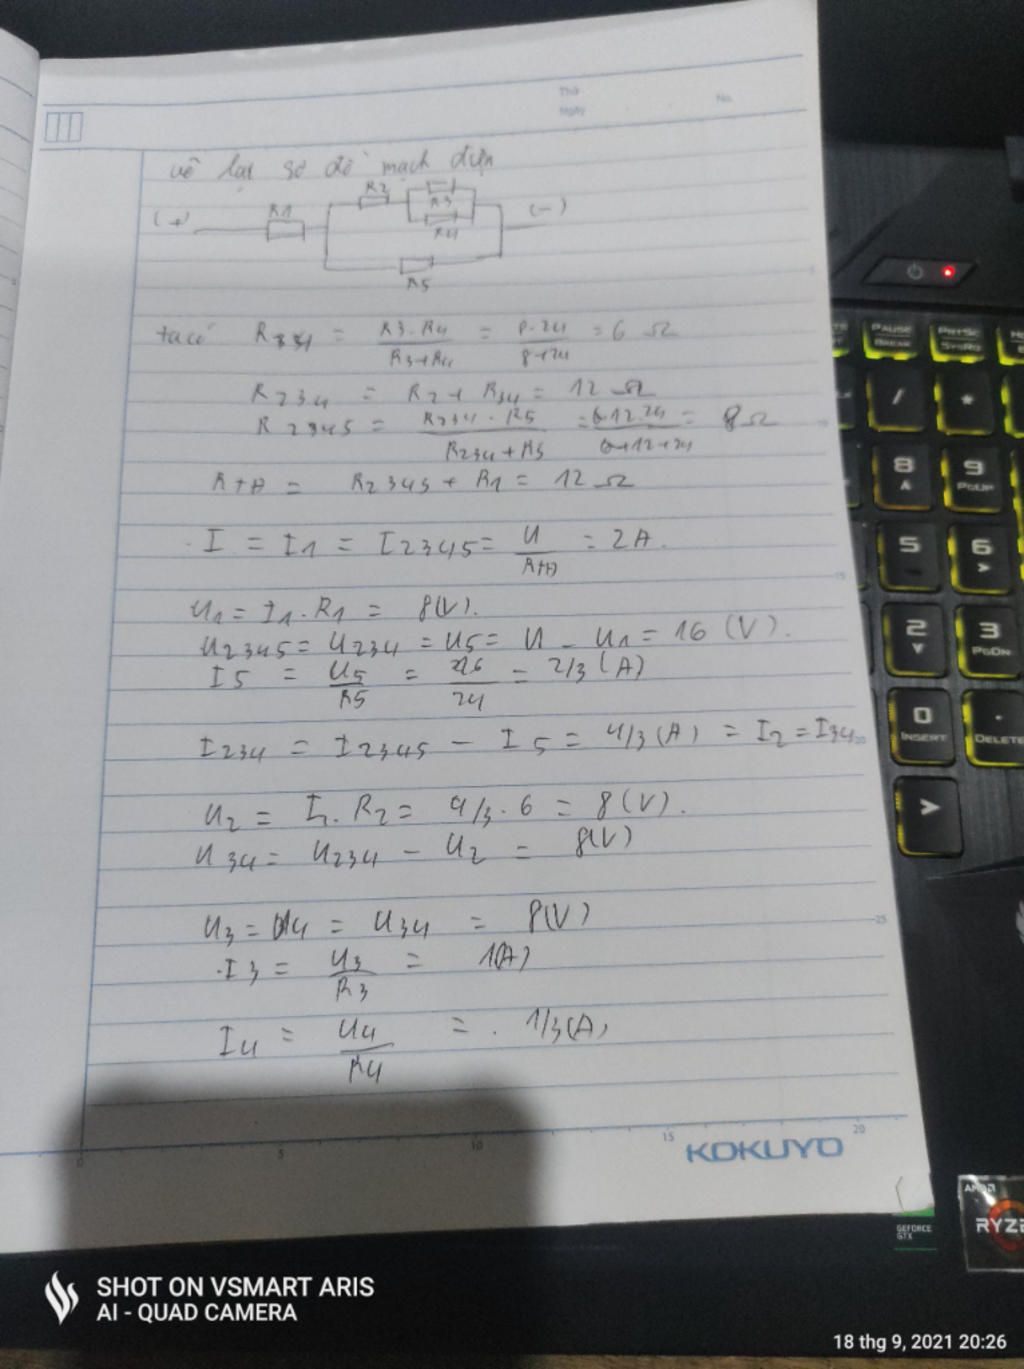 Thứ
Ngày
No.
vẽ lại sơ đồ mạch điện
(+) R1 R2 R3 R4 R5 (-)
ta có R34 = R3.R4 / R3+R4 = 8.24 / 8+24 = 6 Ω
R234 = R2 + R34 = 12 Ω
R2345 = R234.R5 / R234+R5 = 12.24 / 12+24 = 8Ω
Rtđ = R2345 + R1 = 12 Ω
I = I1 = I2345 = U / Rtđ = 2A.
U1 = I1.R1 = 8(V).
U2345 = U234 = U5 = U - U1 = 16 (V).
I5 = U5 / R5 = 16 / 24 = 2/3 (A)
I234 = I2345 - I5 = 4/3(A) = I2 = I34
U2 = I2.R2 = 4/3.6 = 8(V).
U34 = U234 - U2 = 8(V)
U3 = U4 = U34 = 8(V)
I3 = U3 / R3 = 1(A)
I4 = U4 / R4 = 1/3(A)
0 5 10 15 20
KOKUYO
PAUSE BREAK
PRTSC SYSRQ
/ *
8 9 PGUP
5 6
2 3 PGDN
0 INSERT . DELETE
GEFORCE GTX
AMD RYZE
SHOT ON VSMART ARIS
AI - QUAD CAMERA
18 thg 9, 2021 20:26